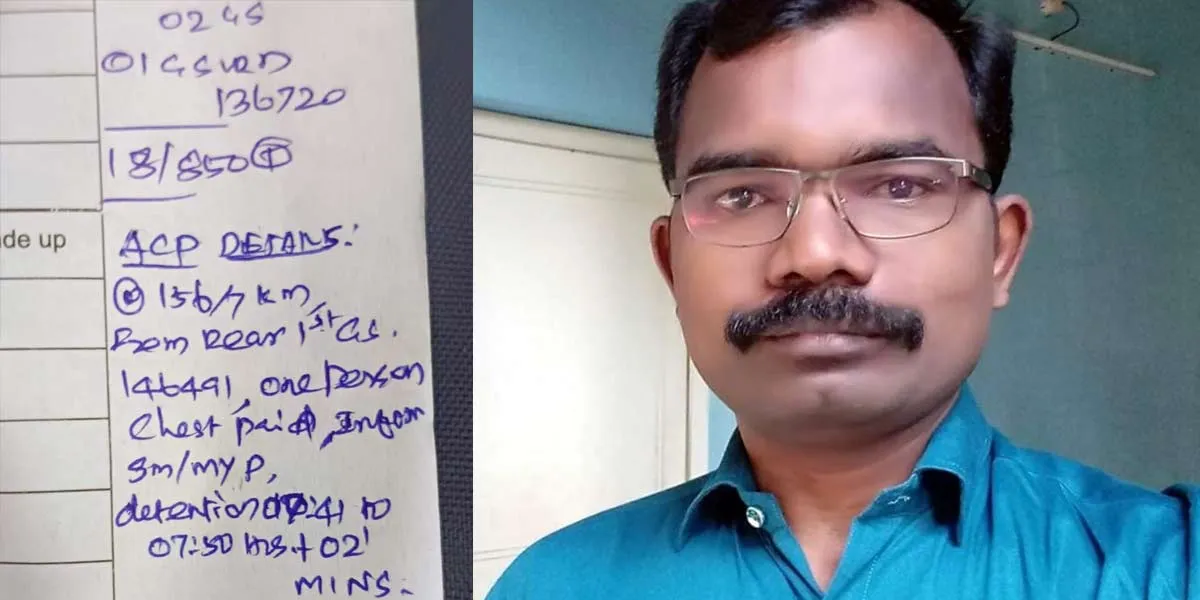 02 GS
01 GSLRD
136720
18/850 Ⓣ
de up
ACP DETAILS:
@ 156/7 KM,
From Rear 1st GS.
146491, one person
Chest pain, Inform
SM/MYP,
detention 07:41 to
07:50 hrs + 02'
MINS.